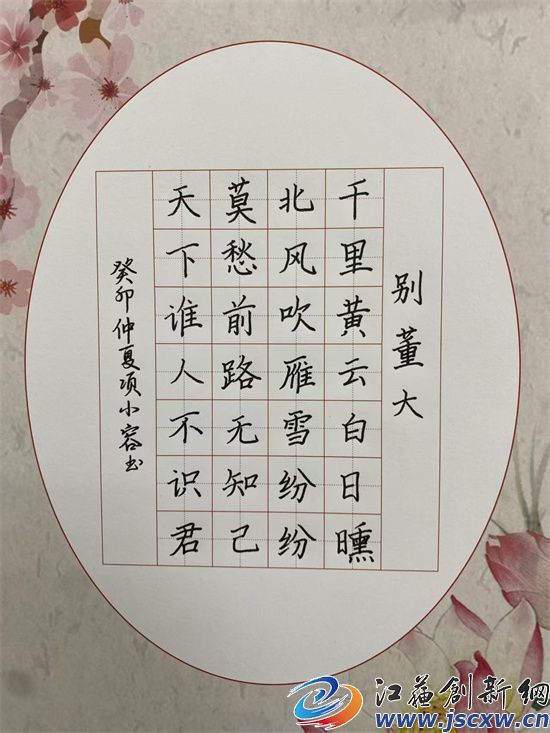 别董大
千里黄云白日曛
北风吹雁雪纷纷
莫愁前路无知己
天下谁人不识君
癸卯仲夏项小容书
江蘇創新網
www.jscxw.cn